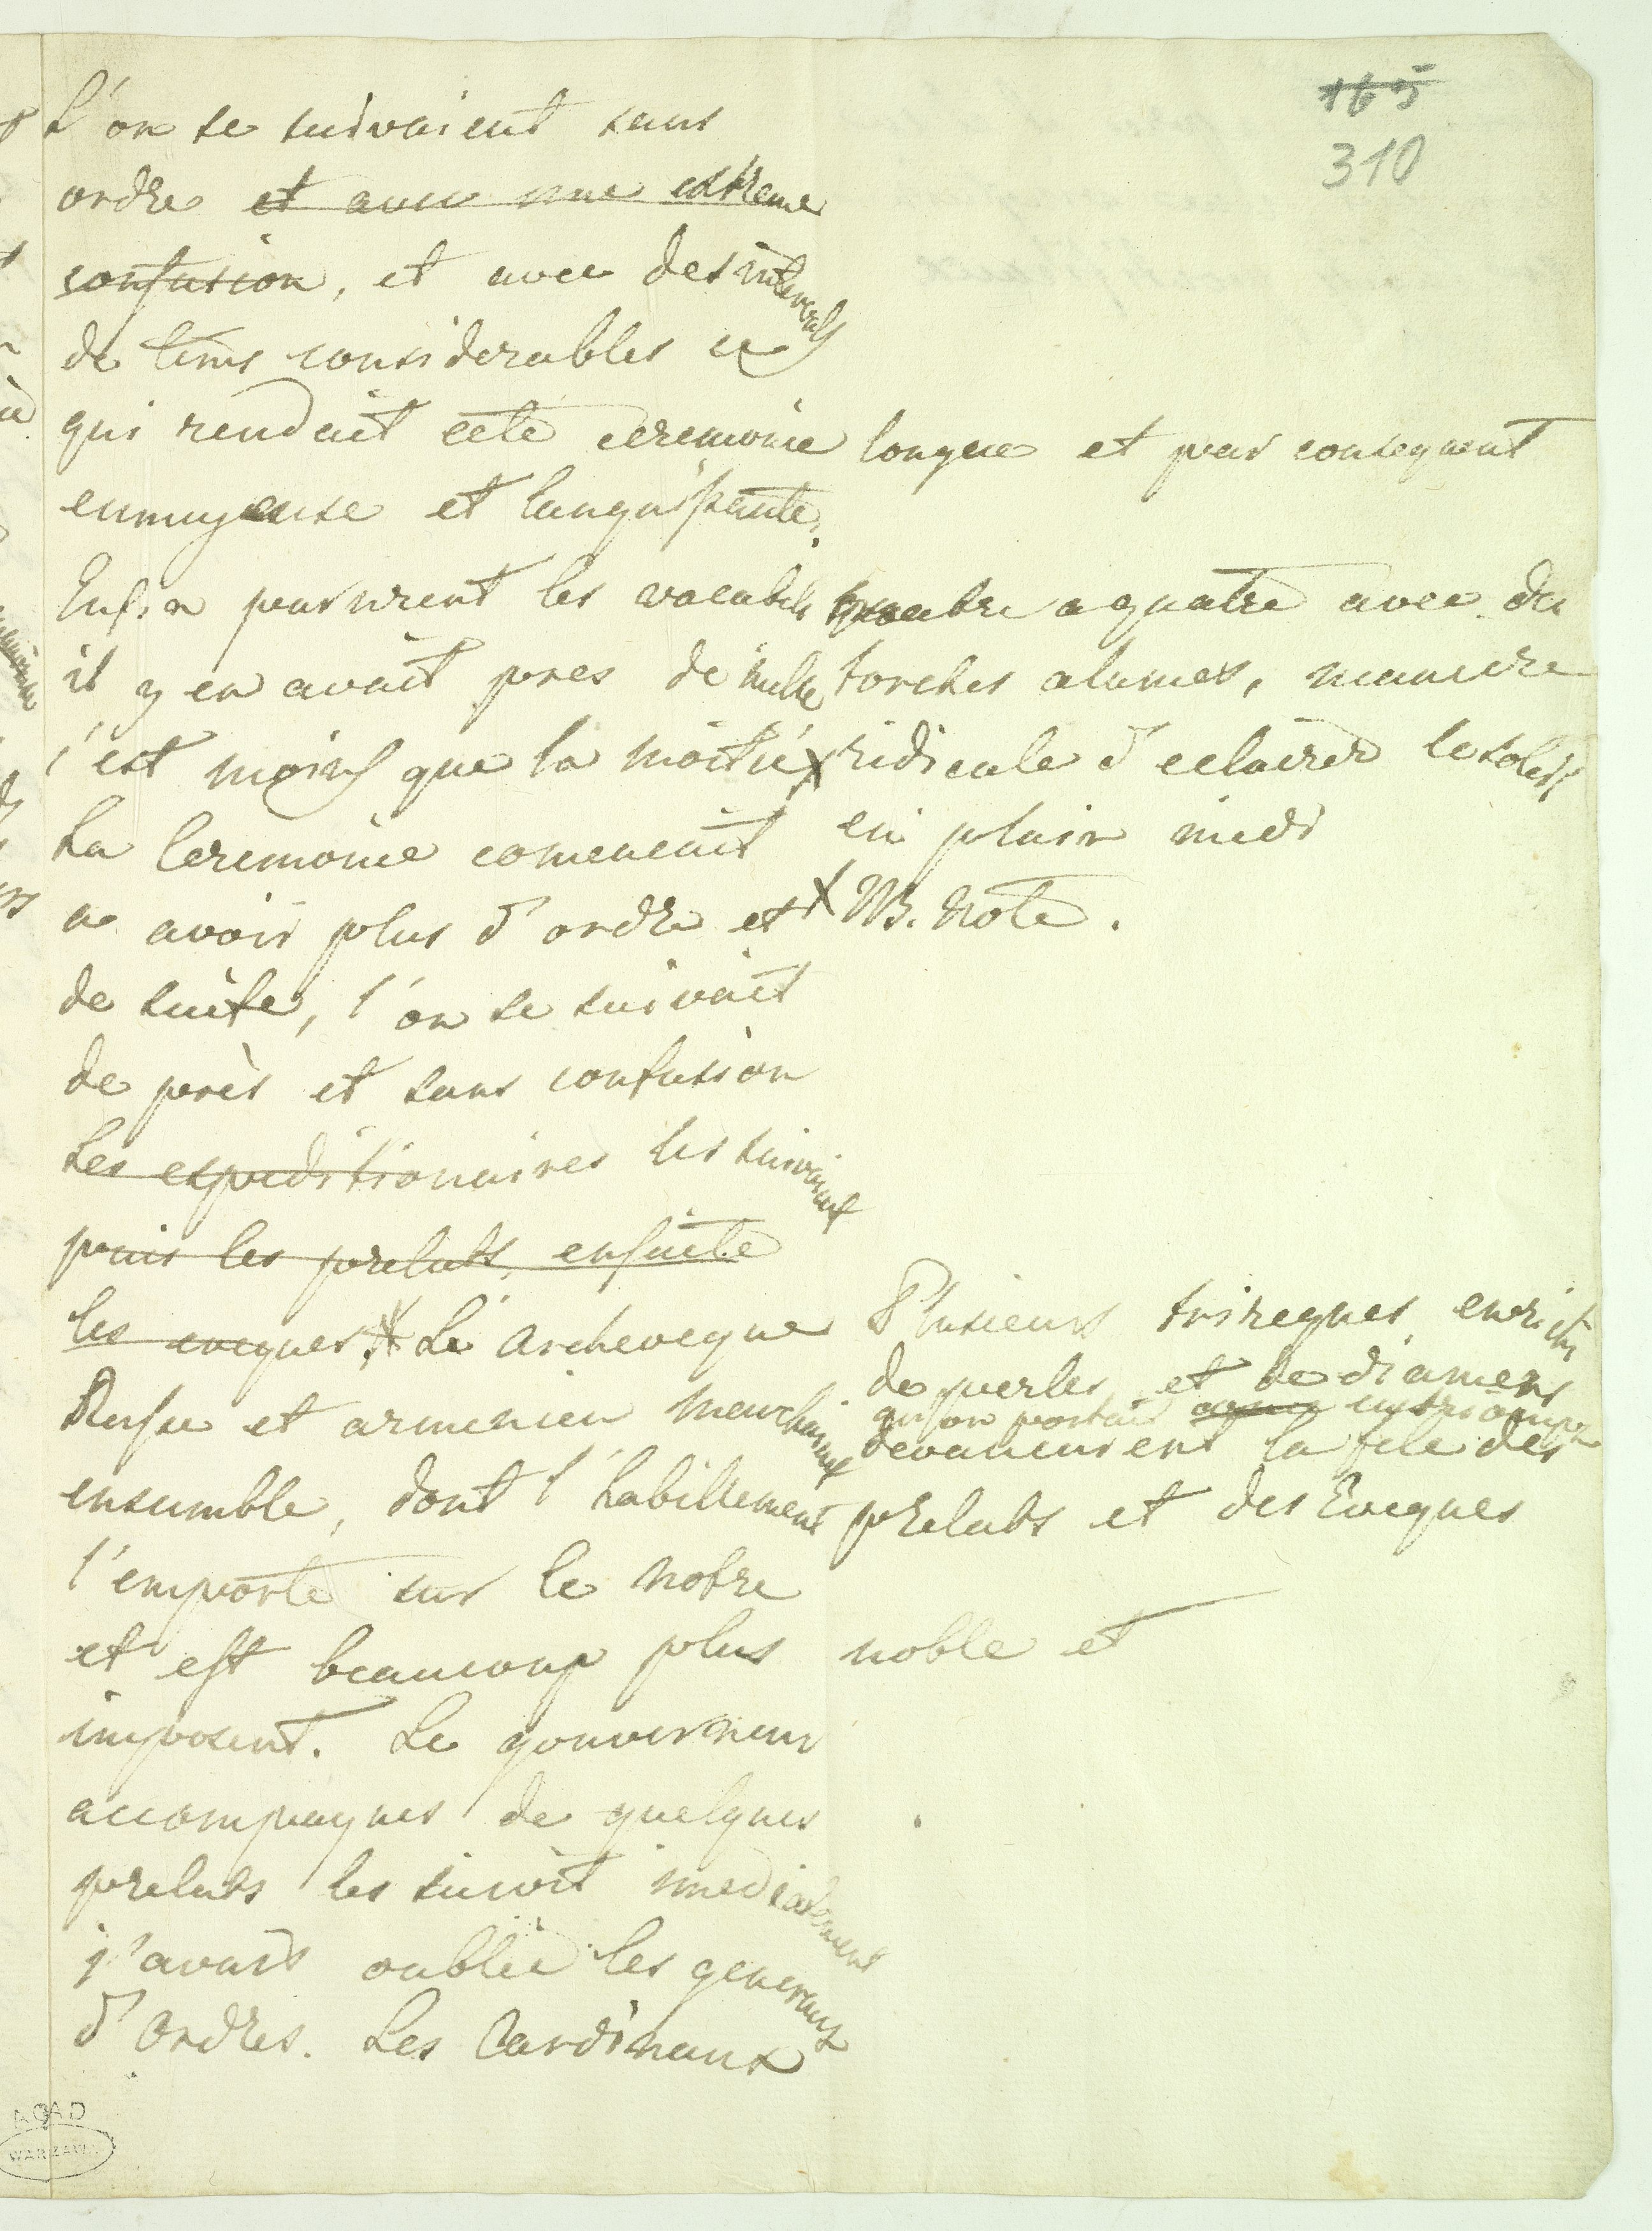 165
310
L'on se suivaient sans
ordre et avec une extreme
confusion, et avec des intervals
de tems considerables ce
qui rendait cete ceremonie longue et par consequent
ennuyeuse et languissante.
Enfin parurent les vocabili quatre a quatre avec des
il y en avait pres de mille torches alumes, maniere
c'est moins que la moitié X ridicule d'eclairer le soleil
La Ceremonie comencait en plain midi
a avoir plus d'ordre et X NB. Note.
de suite, l'on se suivait
de près et sans confusion
Les expeditionaires les suivaient
puis les prelats, ensuite
les eveques. Le Archeveque
Russe et armenien marchaient
ensemble, dont l'habillement
l'emporte sur le notre
et est beaucoup plus noble et
imposent. Le gouverneur
accompagnes de quelques
prelats les suivoit imediatement
j'avais oublié les generaux
d'Ordres. Les Cardinaux
Plusieurs triregnes enrichis
de perles et de diamens
qu'on portait en triomphe
devancaient la file des
prelats et des Eveques
AGAD
WARSZAWA